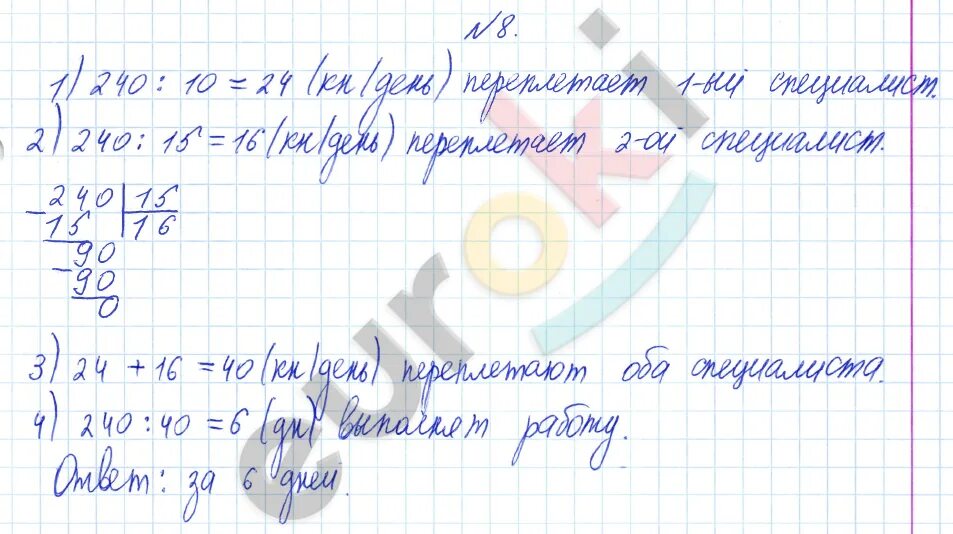 №8.
1) 240 : 10 = 24 (кн/день) переплетает 1-ый специалист.
2) 240 : 15 = 16 (кн/день) переплетает 2-ой специалист.
240 | 15
- 15 | 16
90
- 90
0
3) 24 + 16 = 40 (кн/день) переплетают оба специалиста.
4) 240 : 40 = 6 (дн) выполнят работу.
Ответ: за 6 дней.
euroki